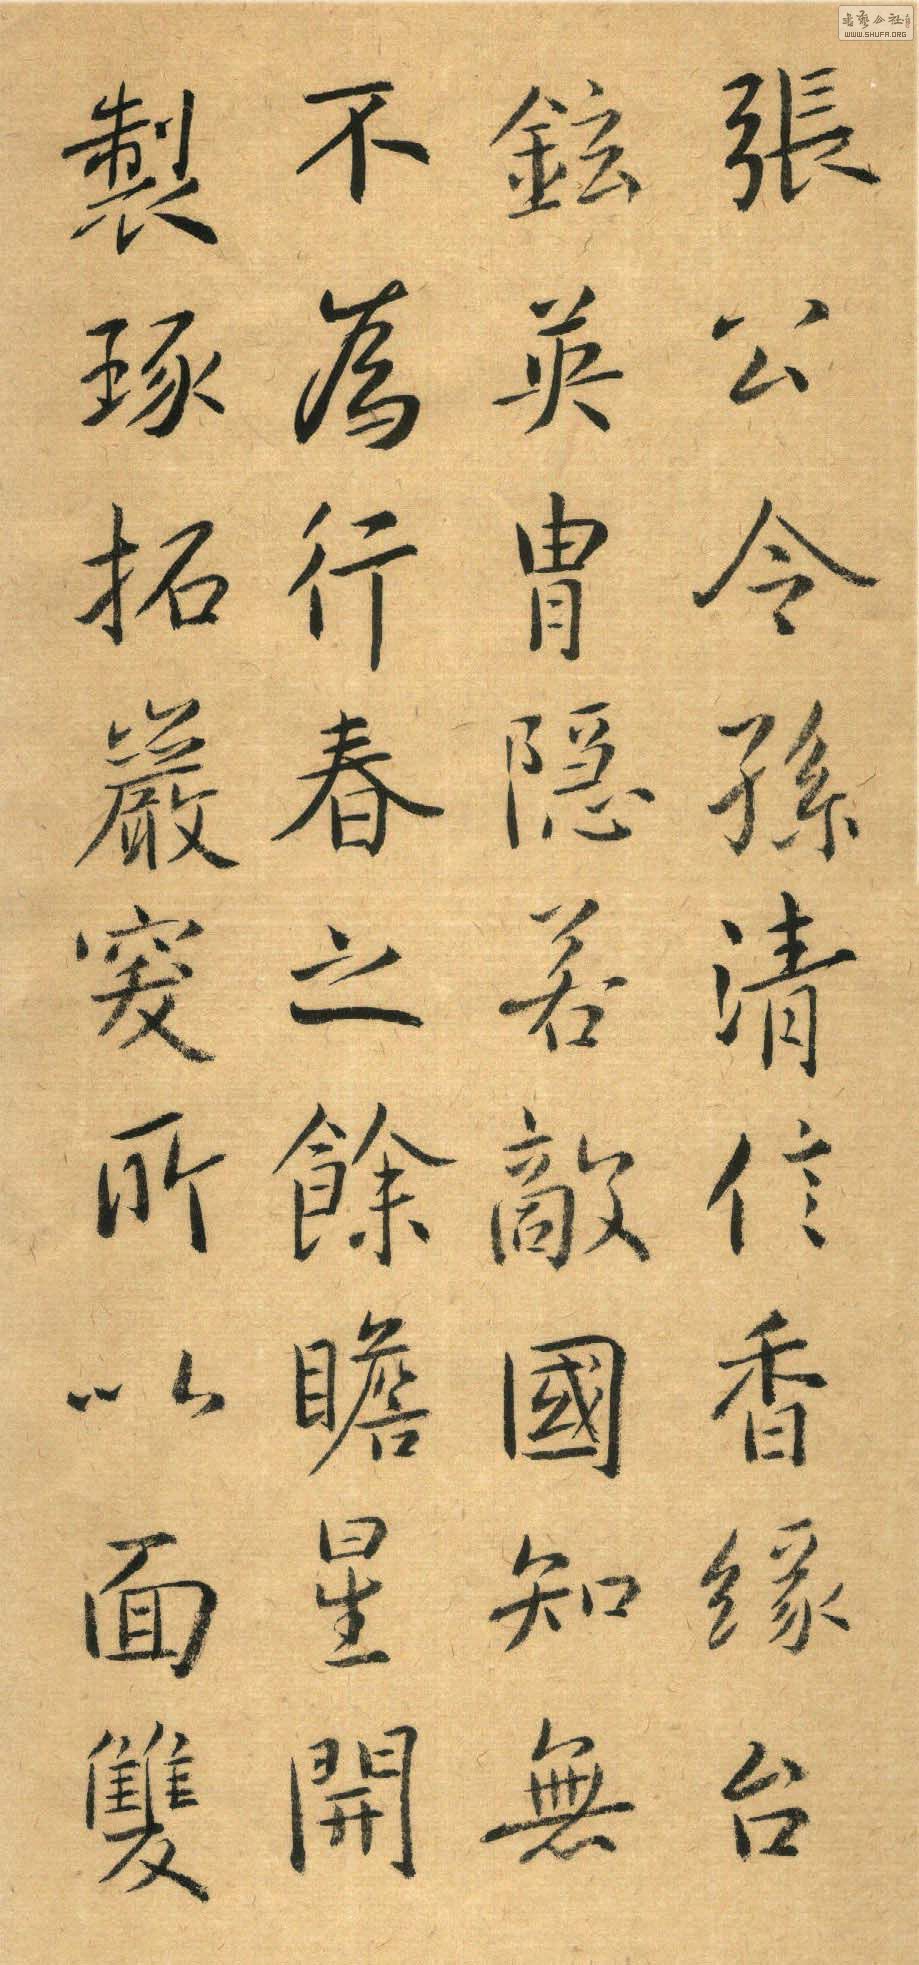 張公令孫清信香緣台
鉉英胄隐若敵國知無
不為行春之餘瞻星開
製琢拓巖窔所以面雙
WWW.SHUFA.ORG